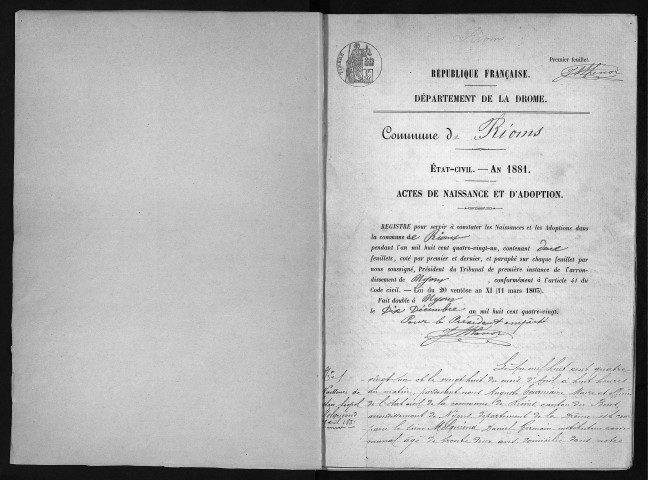 Rioms
Premier feuillet.
RÉPUBLIQUE FRANÇAISE.
DÉPARTEMENT DE LA DROME.
Commune de Rioms
ÉTAT-CIVIL. — AN 1881.
ACTES DE NAISSANCE ET D'ADOPTION.
REGISTRE pour servir à constater les Naissances et les Adoptions dans
la commune de Rioms
pendant l'an mil huit cent quatre-vingt-un, contenant deux
feuillets, coté par premier et dernier, et paraphé sur chaque feuillet par
nous soussigné, Président du Tribunal de première instance de l'arron-
dissement de Nyons, conformément à l'article 41 du
Code civil. — Loi du 20 ventôse an XI (11 mars 1803).
Fait double à Nyons
le Dix Décembre au mil huit cent quatre-vingt.
Pour le Président empêché
N° 1
Naissance de
L'an mil huit cent quatre
vingt-un et le vingt huit du mois d'avril à huit heures
du matin, pardevant nous Auguste Maire et officier
de l'état civil de la commune de Rioms canton de
arrondissement de Nyons, département de la Drôme, est com
paru le sieur Daniel Germain instituteur com
munal âgé de trente deux ans domicilié dans notre